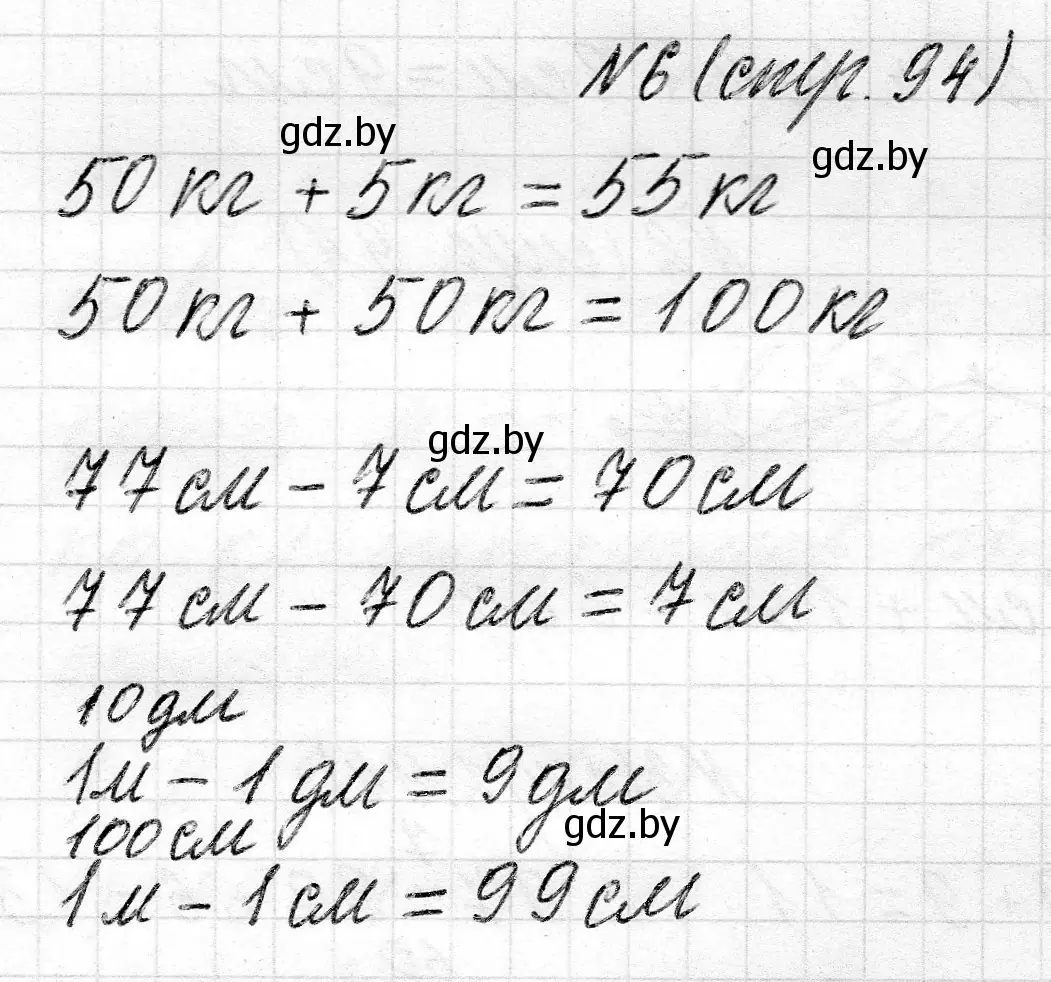 №6 (стр. 94)
gdz.by
gdz.by
50 кг + 5 кг = 55 кг
50 кг + 50 кг = 100 кг
gdz.by
77 см - 7 см = 70 см
77 см - 70 см = 7 см
10 дм
1 м - 1 дм = 9 дм
gdz.by
100 см
1 м - 1 см = 99 см